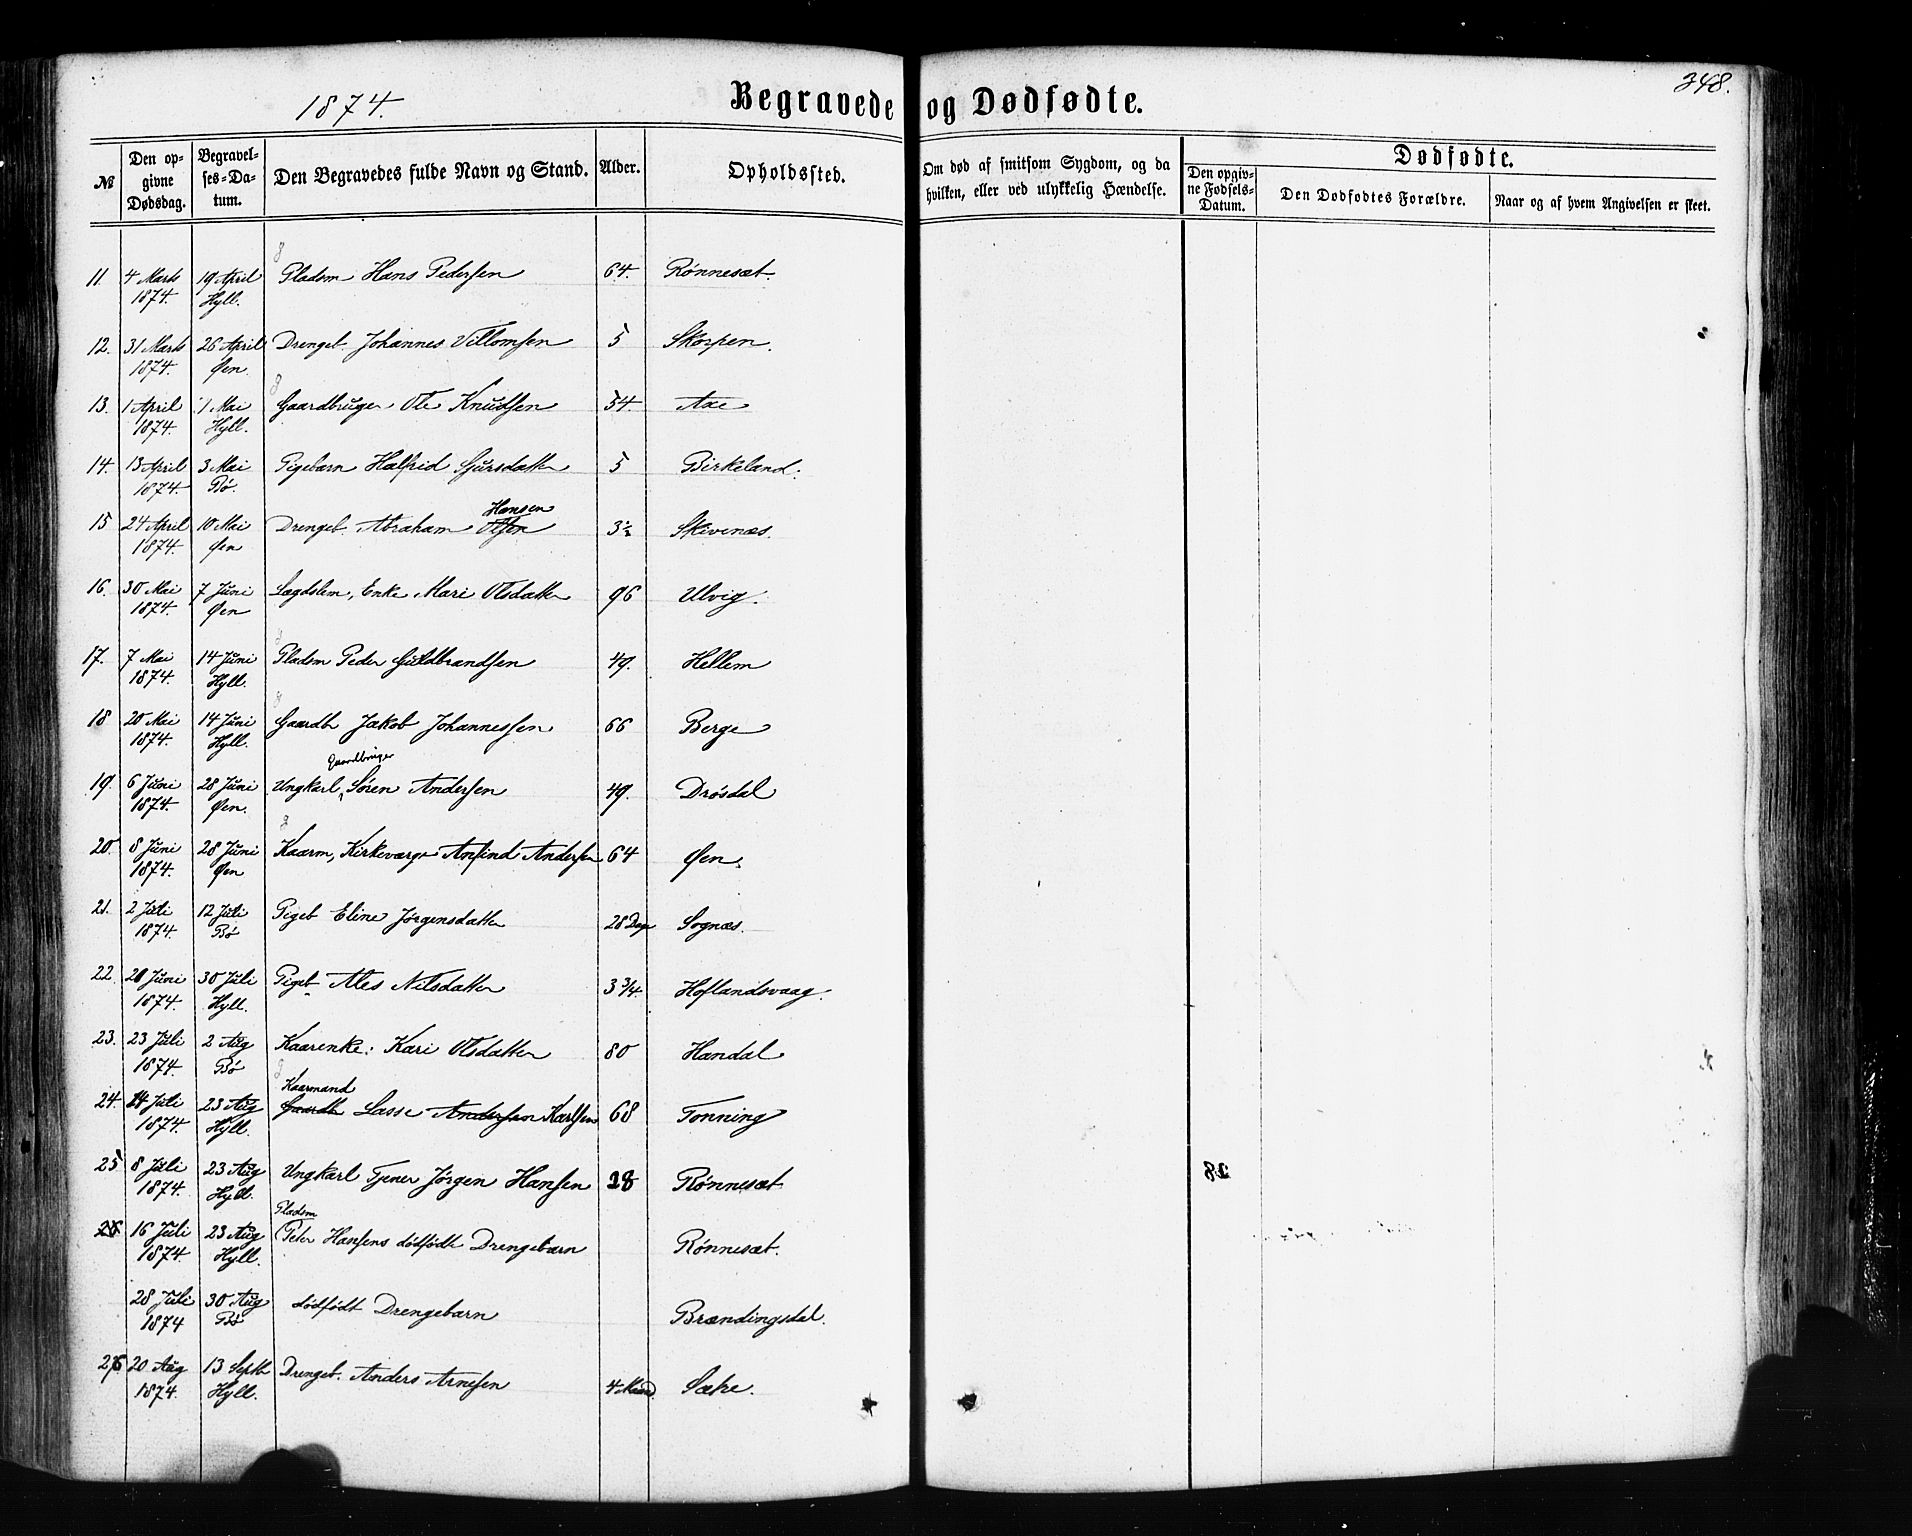 1874.
Begravede og Dødfødte.
348.
№
Den opgivne Dødsdag.
Begravelses-Datum.
Den Begravedes fulde Navn og Stand.
Alder.
Opholdssted.
Om død af smitsom Sygdom, og da hvilken, eller ved ulykkelig Hændelse.
Dødfødte.
Den opgivne Fødsels-Datum.
Den Dødfødtes Forældre.
Naar og af hvem Angivelsen er skeet.
11. 4 Marts 19 April Pladsm Hans Pedersen 64. Rønnesæt.
1874. Hyll.
12. 31 Marts 26 April Drengeb. Johannes Villomsen 5 Skorpen.
1874. Øen.
13. 1 April 1 Mai Gaardbruger Ole Knudsen 54. Axe
1874. Hyll.
14. 13 April 3 Mai Pigebarn Halfrid Sjursdatter 5 Birkeland.
1874. Bø.
Hansen
15 24 April 10 Mai Drengeb. Abraham Olsen 3½ Skivenæs.
1874. Øen
16. 30 Mai 7 Juni Lægdslem, Enke Mari Olsdatter 96 Ulvig.
1874. Øen
17. 7 Mai 14 Juni Pladsm Peder Guldbrandsen 49. Hellem
1874. Hyll.
18 20 Mai 14 Juni Gaardb Jakob Johannessen 66 Berge
1874. Hyll.
Gaardbruger
19. 6 Juni 28 Juni Ungkarl, Søren Andersen 49. Drøsdal
1874. Øen.
20. 8 Juni 28 Juni Kaarm, Kirkeværge Anfind Andersen 64 Øen.
1874. Øen
21. 2 Juli 12 Juli Pigeb Eline Jørgensdatter 28 Dage Sognæs.
1874. Bø
22. 20 Juni 30 Juli Pigeb Ales Nilsdatter 3¾. Hoflandsvaag.
1874. Hyll.
23. 23 Juli 2 Aug Kaarenke: Kari Olsdatter 80 Handal
1874. Bø
Kaarmand
24. 14 Juli 23 Aug Gaardb Lasse Andersen Karlsen 68 Tonning
1874. Hyll.
25 8 Juli 23 Aug Ungkarl Tjener Jørgen Hansen 28 Rønnesæt
1874. Hyll.
Pladsm
26 16 Juli 23 Aug Peter Hansens dødfødte Drengebarn Rønnesæt.
1874. Hyll.
28 Juli 30 Aug dødfødt Drengebarn Brændingsdal.
1874 Bø
26 20 Aug 13 Septb Drengeb. Anders Arnesen 4 Maand. Sæhe.
1874. Hyll.